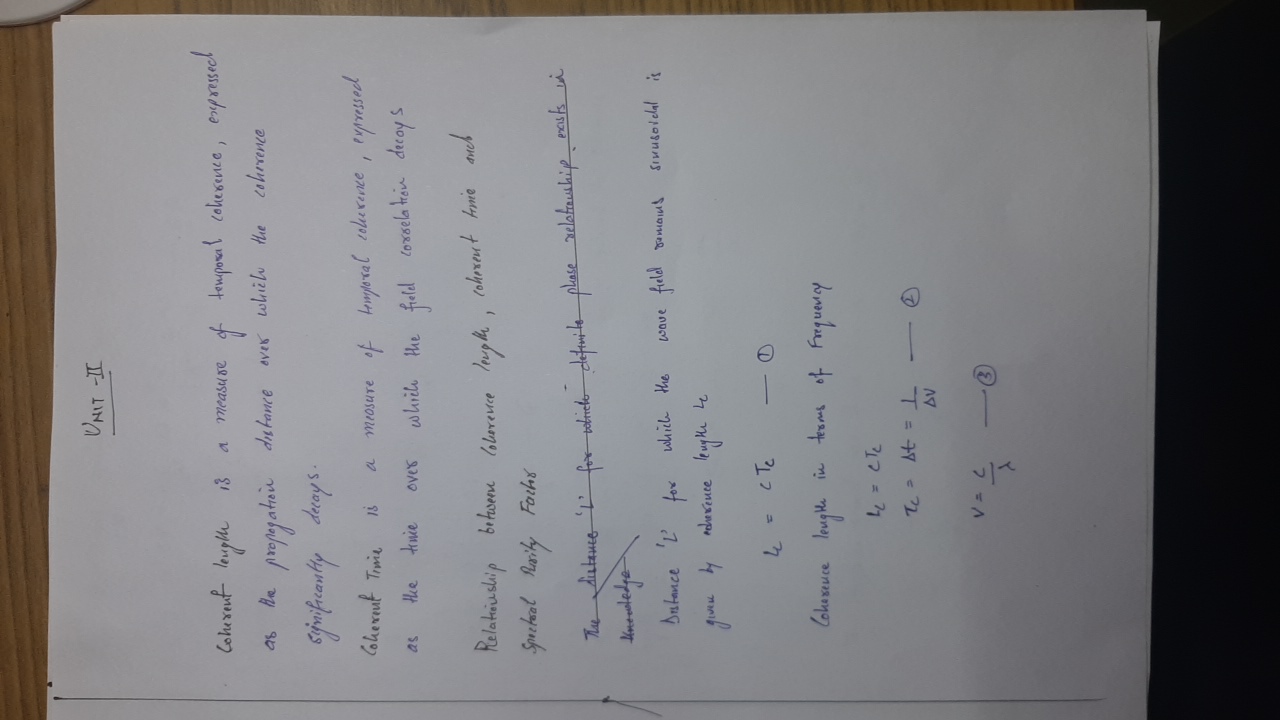 UNIT - II
Coherent length is a measure of temporal coherence, expressed
as the propogation distance over which the coherence
significantly decays.
Coherent Time is a measure of temporal coherence, expressed
as the time over which the field correlation decays
Relationship between coherence length, coherent time and
Spectral Purity Factor
The distance 'L' for which definite phase relationship exists in
knowledge
Distance 'L' for which the wave field remains sinusoidal is
given by coherence length Lc
Lc = CTc — ①
Coherence length in terms of Frequency
Lc = CTc
Tc = Δt = 1/Δν — ②
ν = C/λ — ③